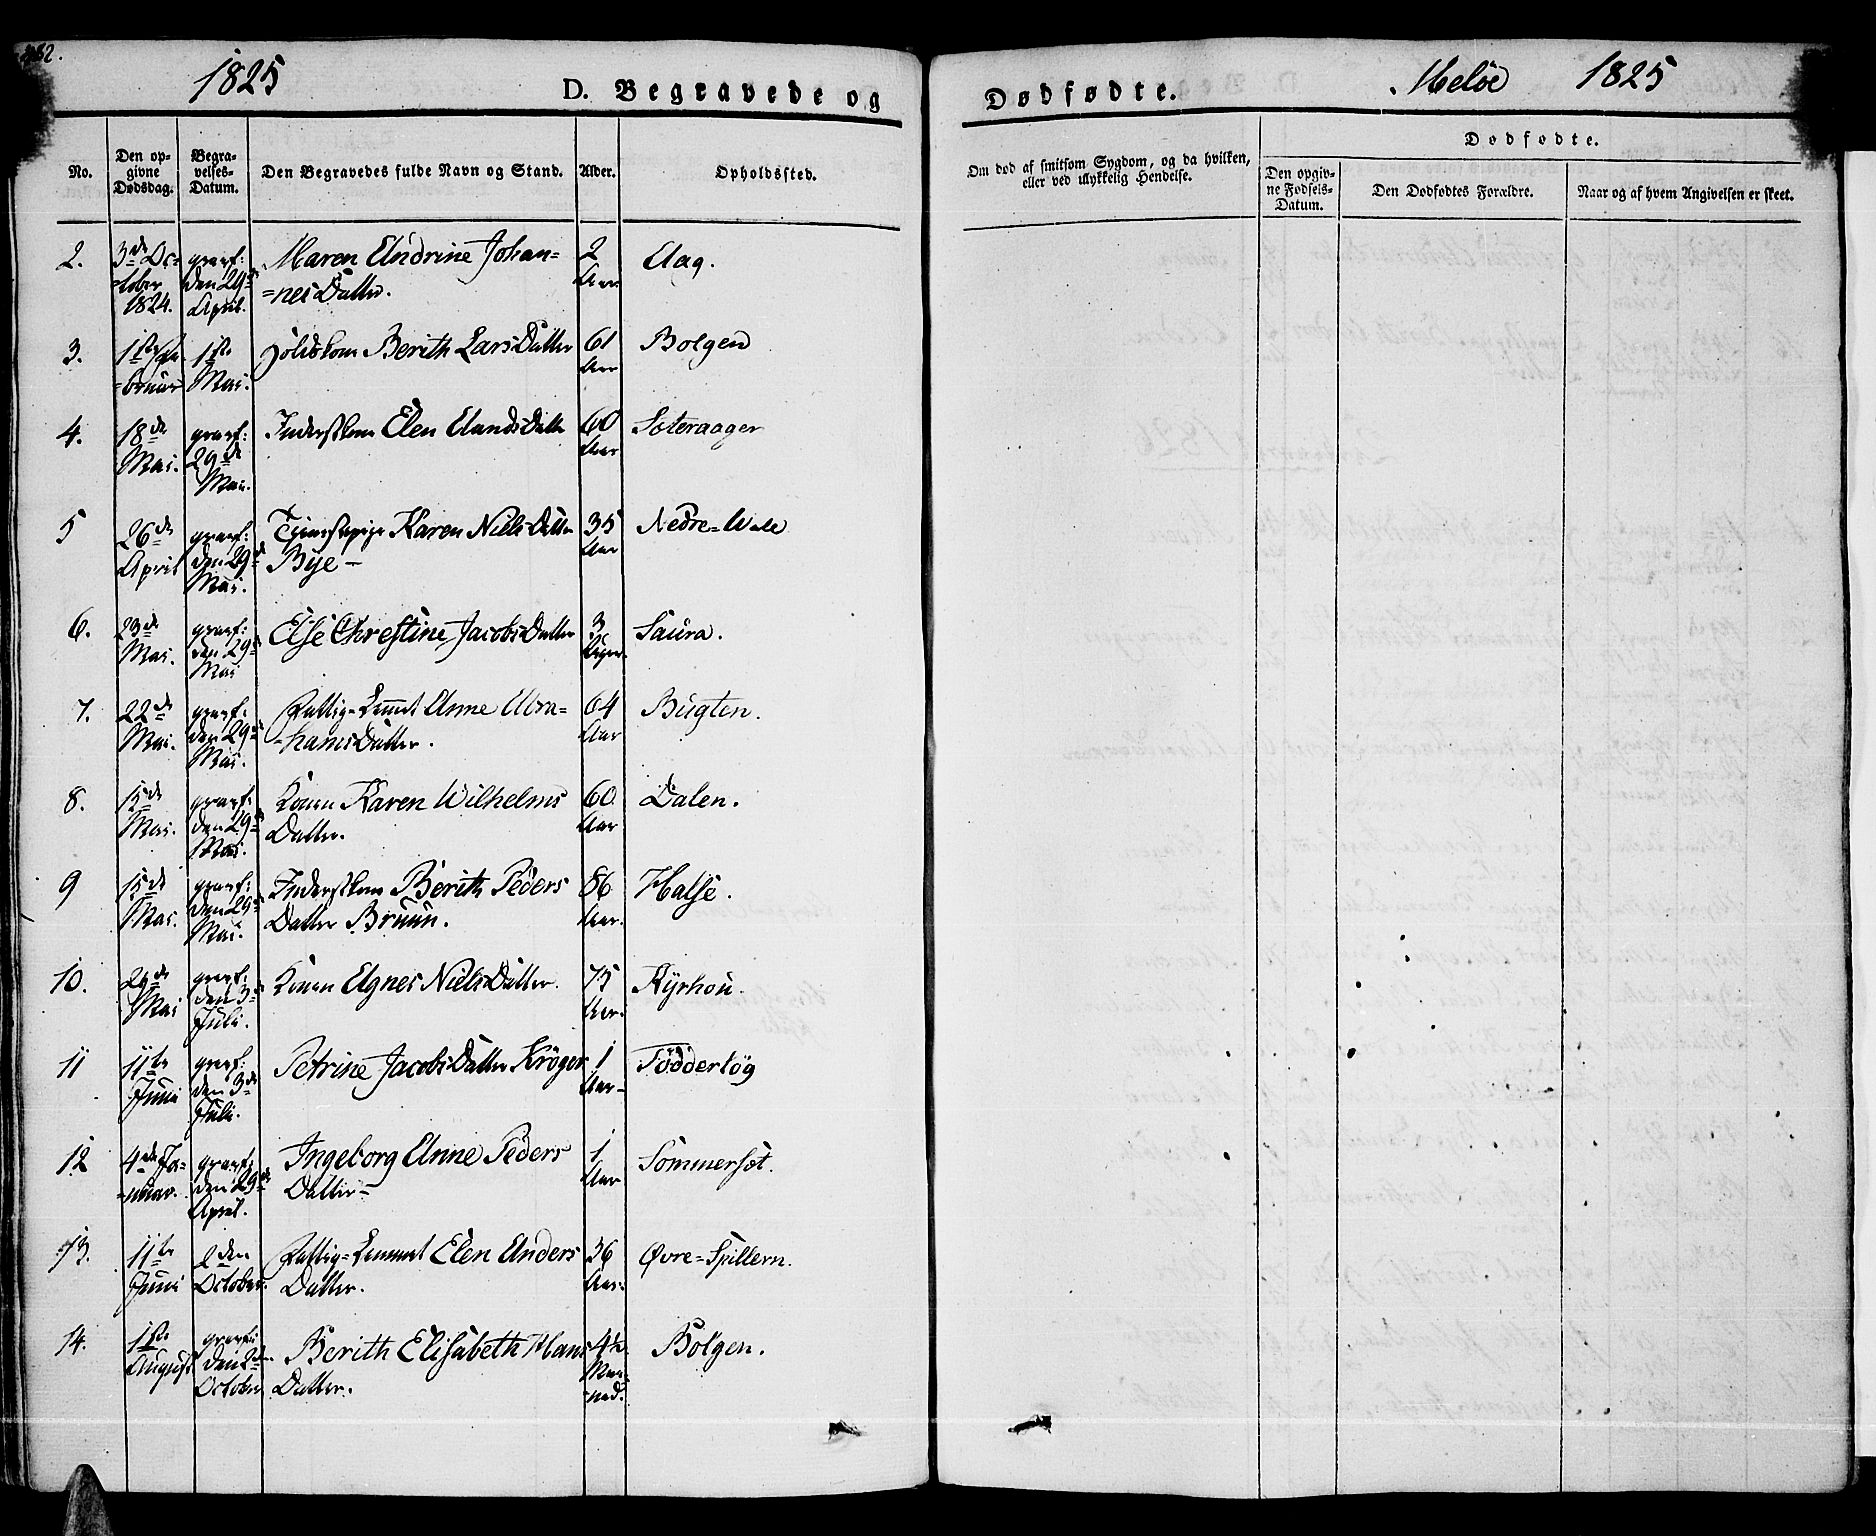 1825
D. Begravede og
No.
Den op-
givne
Dødsdag.
Begra-
velses-
Datum.
Den Begravedes fulde Navn og Stand.
Alder.
Opholdssted.
2.
3de Oc-
=tober
1824.
græsf:
den 29de
April.
Maren Andrine Johan-
=nesDatter.
2
Aar
Aag.
3.
1ste Fe-
=bruar
1ste
Mai.
Berith LarsDatter
61
Aar
Bolgen
4.
18de
Mai.
græsf:
29de
Mai.
Inderstkone Elen AmundsDatter
60
Aar
5
26de
April
græsf:
den 29de
Mai.
Tjenestepige Karen NielsDatter
Bye -
35
Aar
Nedre=
6.
23de
Mai.
græsf:
den 29de
Mai
Else Chrestine JacobsDatter
3
Uger.
Saura.
7.
22de
Mai.
græsf:
den 29de
Mai.
Fattig=Lemmet Anne Abra-
-hamsDatter.
64
Aar
Bugten.
8.
15de
Mai.
græsf:
den 29de
Mai.
Konen Karen Wilhelms
Datter.
60
Aar
Dalen.
9
15de
Mai.
græsf:
den 29de
Mai.
Inderstkone Berith Peders
Datter Bruun.
86
Aar.
Halse.
10.
29de
Mai
græsf:
den 3de
Juli.
Konen Agnes NielsDatter.
75
Aar.
Kyrhou.
11
11te
Juni
græsf:
den 3de
Juli.
Petrine JacobsDatter Krøger
1
Aar-
12
4de Ja-
=nuar.
græsf:
den 29de
April.
Ingeborg Anne Peders
Datter=
1
Aar
Sommerset.
13.
11te
Juni
2den
October.
Fattig=Lemmet Elen Anders
Datter.
36
Aar.
Øvre=Spillern.
14.
1ste
August
græsf:
den 2den
October
Berith Elisabeth Hans
Datter.
4½
Maa-
-ned.
Bolgen.
Dødfødte.
Meløe 1825
Om død af smitsom Sygdom, og da hvilken,
eller ved ulykkelig Hendelse.
Dødfødte.
Den opgiv-
ne Fødsels-
Datum.
Den Dødfødtes Forældre.
Naar og af hvem Angivelsen er skeet.